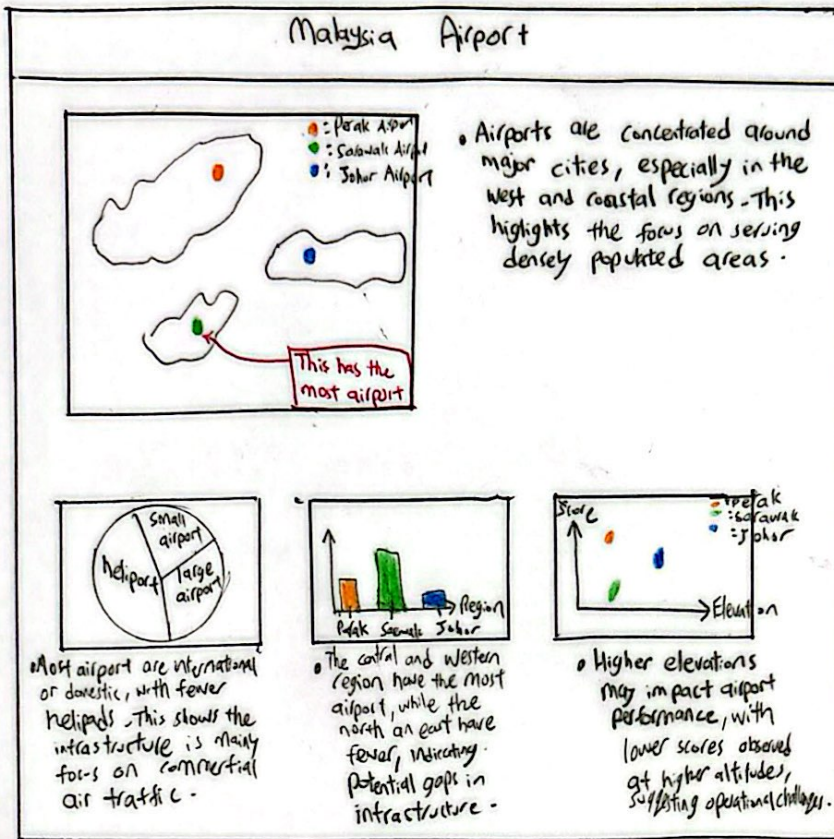 Malaysia Airport
: Perak Airport
: Sarawak Airport
: Johor Airport
This has the
most airport
• Airports are concentrated around
major cities, especially in the
west and coastal regions. This
higlights the focus on serving
densely populated areas.
small
airport
heliport
large
airport
• Most airport are international
or domestic, with fewer
helipads. This shows the
infrastructure is mainly
focus on commertial
air traffic.
Region
Perak Sarawak Johor
• The central and western
region have the most
airport, while the
north an east have
fewer, indicating
potential gaps in
infrastructure.
Score
: Perak
: Sarawak
: Johor
Elevation
• Higher elevations
may impact airport
performance, with
lower scores observed
at higher altitudes,
suggesting operational challenges.